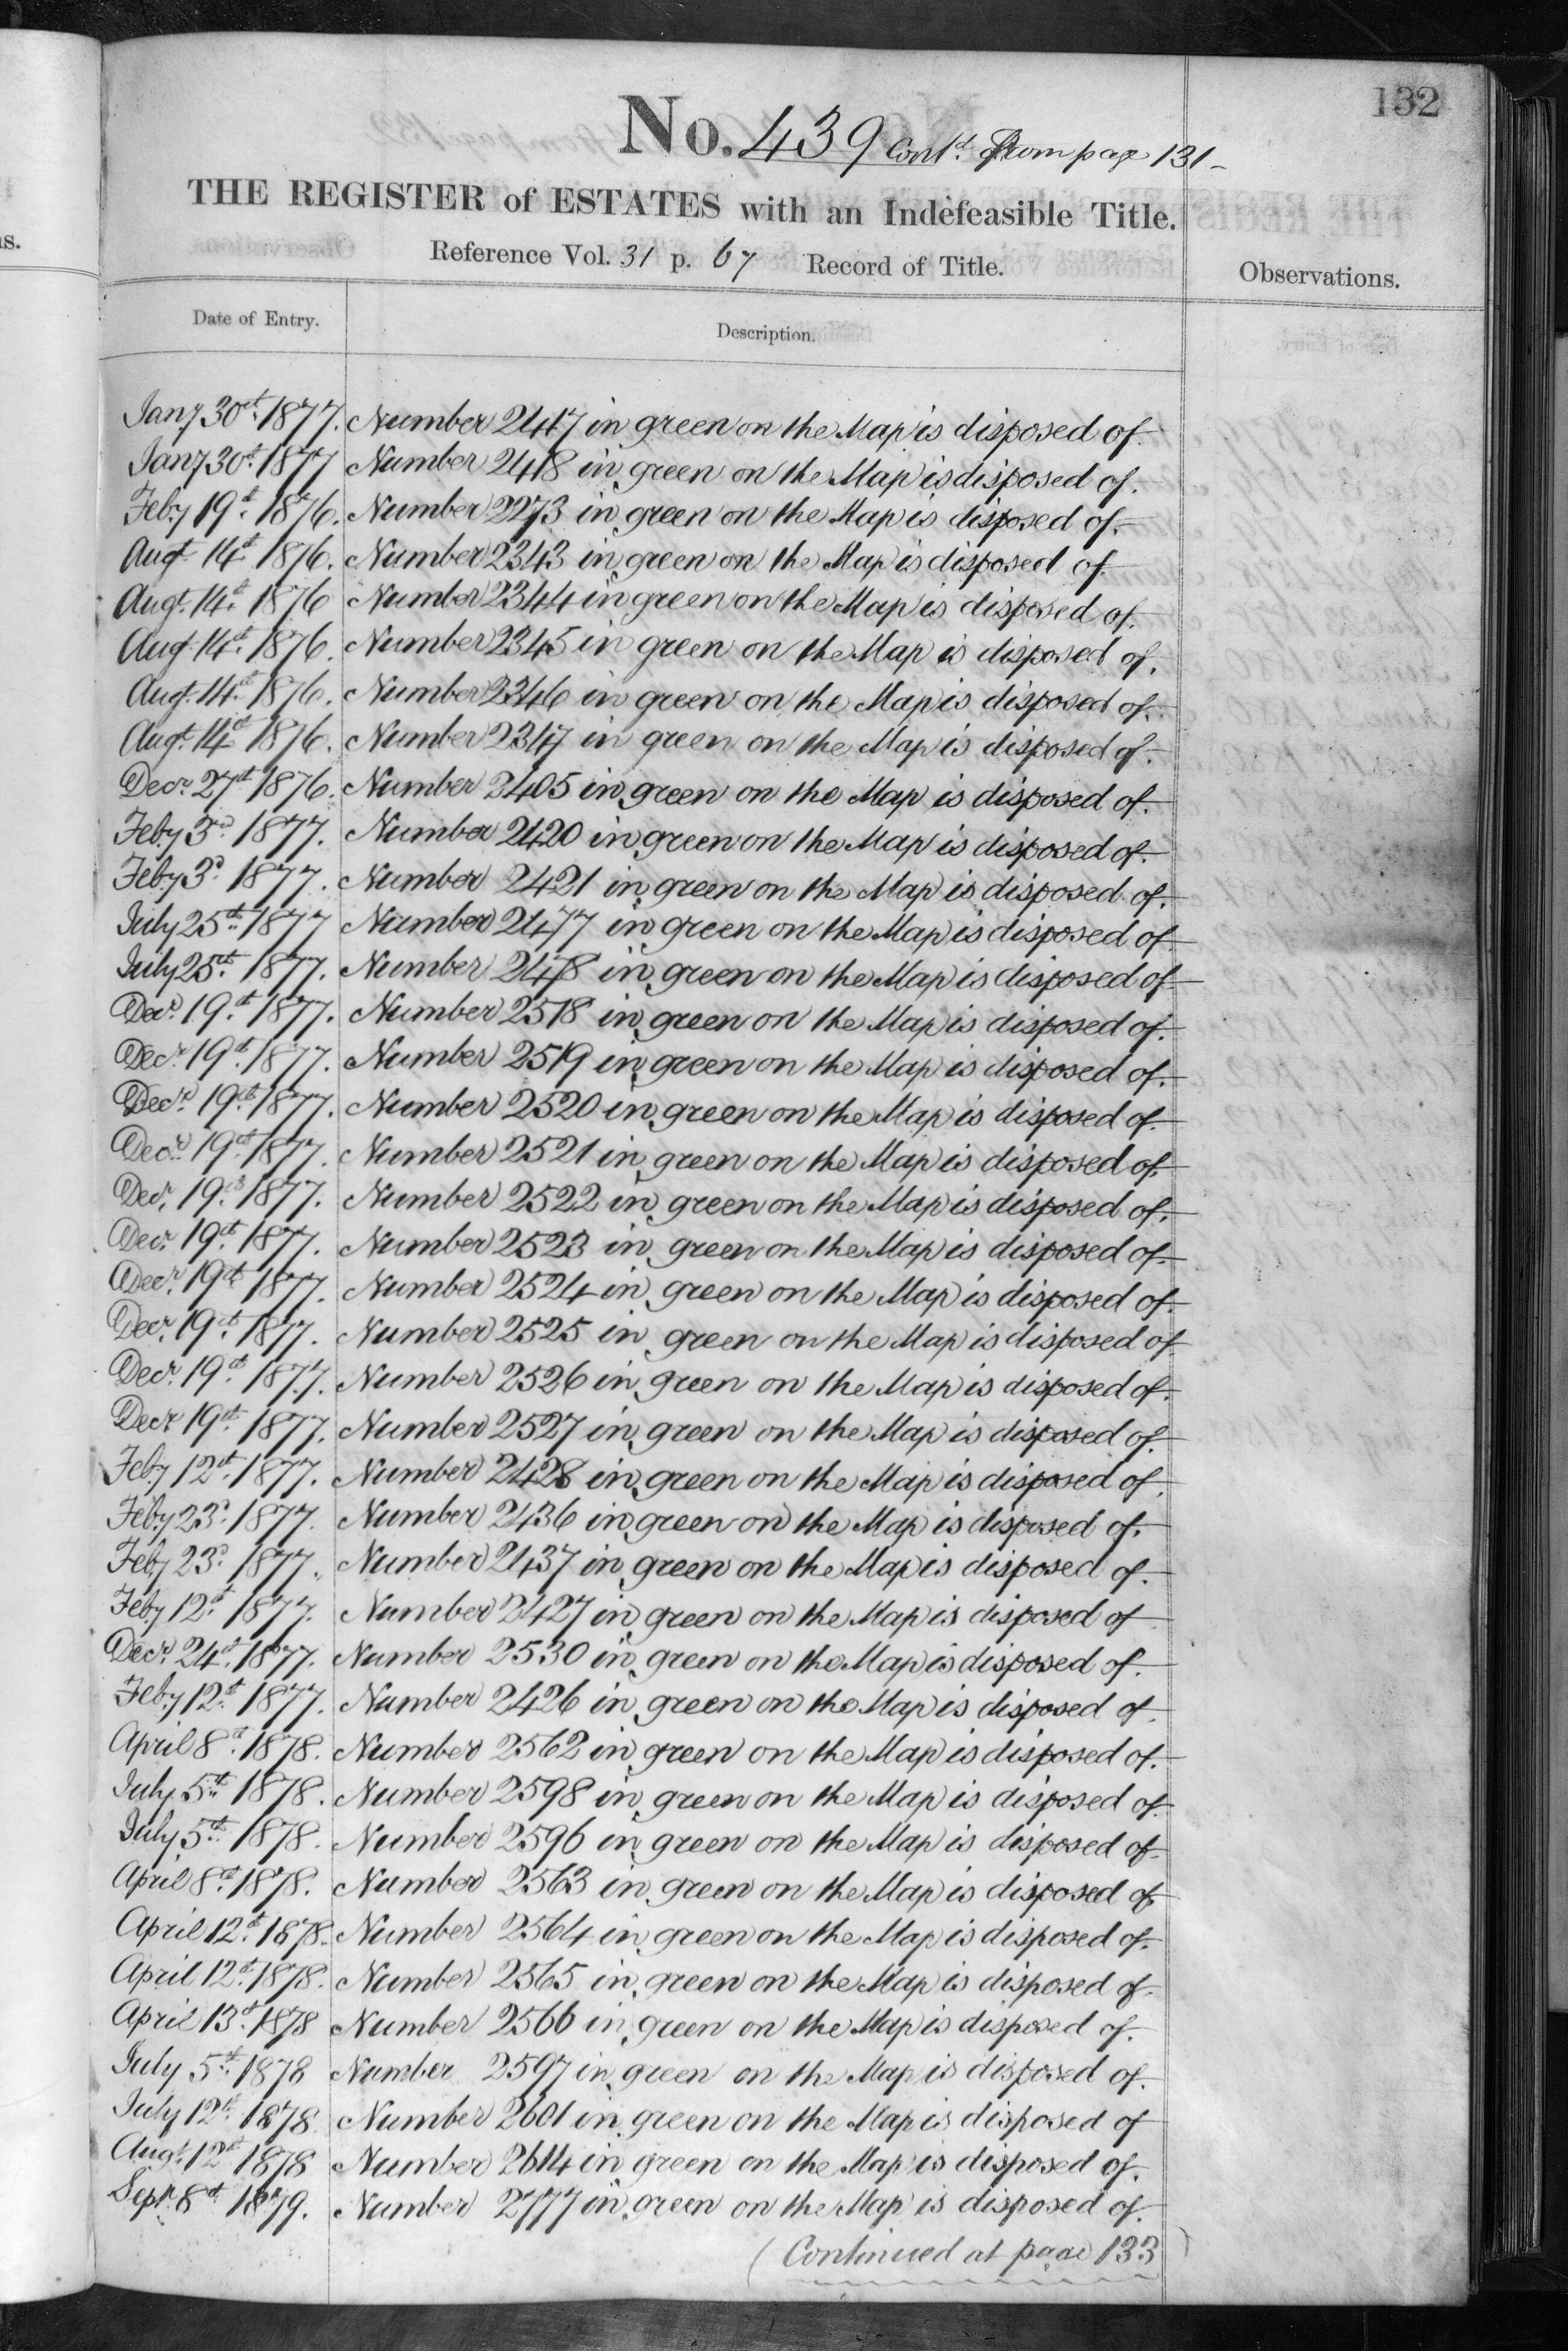 132
No. 439 Contd. from page 131-
THE REGISTER of ESTATES with an Indefeasible Title.
Reference Vol. 31 p. 67 Record of Title.
Observations.
Date of Entry. Description.
Jany 30th 1877. Number 2417 in green on the Map is disposed of.
Jany 30th 1877 Number 2418 in green on the Map is disposed of.
Feby 19th 1876. Number 2273 in green on the Map is disposed of.
Augt 14th 1876. Number 2343 in green on the Map is disposed of
Augt. 14th 1876 Number 2344 in green on the Map is disposed of.
Augt. 14th 1876. Number 2345 in green on the Map is disposed of.
Augt. 14th 1876. Number 2346 in green on the Map is disposed of.
Augt. 14th 1876. Number 2347 in green on the Map is disposed of.
Decr. 27th 1876. Number 2405 in green on the Map is disposed of.
Feby 3d. 1877. Number 2420 in green on the Map is disposed of.
Feby 3d. 1877. Number 2421 in green on the Map is disposed of.
July 25th 1877 Number 2477 in green on the Map is disposed of
July 25th. 1877. Number 2478 in green on the Map is disposed of
Decr. 19th. 1877. Number 2518 in green on the Map is disposed of.
Decr. 19th. 1877. Number 2519 in green on the Map is disposed of.
Decr. 19th. 1877. Number 2520 in green on the Map is disposed of.
Decr. 19th. 1877. Number 2521 in green on the Map is disposed of.
Decr. 19th. 1877. Number 2522 in green on the Map is disposed of.
Decr. 19th. 1877. Number 2523 in green on the Map is disposed of.
Decr. 19th. 1877. Number 2524 in green on the Map is disposed of.
Decr. 19th. 1877. Number 2525 in green on the Map is disposed of
Decr. 19th. 1877. Number 2526 in green on the Map is disposed of.
Decr. 19th. 1877. Number 2527 in green on the Map is disposed of.
Feby 12th. 1877. Number 2428 in green on the Map is disposed of.
Feby 23d. 1877. Number 2436 in green on the Map is disposed of.
Feby 23d. 1877. Number 2437 in green on the Map is disposed of.
Feby 12th. 1877. Number 2427 in green on the Map is disposed of
Decr. 24th. 1877. Number 2530 in green on the Map is disposed of.
Feby 12th. 1877. Number 2426 in green on the Map is disposed of.
April 8th. 1878. Number 2562 in green on the Map is disposed of.
July 5th. 1878. Number 2598 in green on the Map is disposed of.
July 5th. 1878. Number 2596 in green on the Map is disposed of.
April 8th. 1878. Number 2563 in green on the Map is disposed of.
April 12th. 1878. Number 2564 in green on the Map is disposed of.
April 12th. 1878. Number 2565 in green on the Map is disposed of.
April 13th. 1878 Number 2566 in green on the Map is disposed of.
July 5th. 1878 Number 2597 in green on the Map is disposed of.
July 12th. 1878 Number 2601 in green on the Map is disposed of
Augt. 12th 1878 Number 2614 in green on the Map is disposed of.
Sept. 8th 1879. Number 2777 in green on the Map is disposed of.
(Continued at page 133)